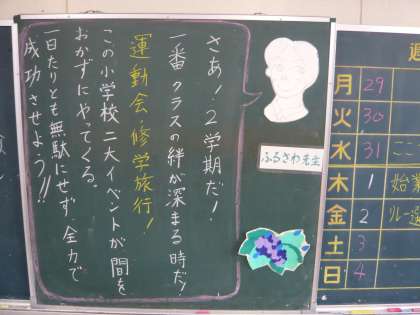 さあ！２学期だ！
一番クラスの絆が深まる時だ！
運動会・修学旅行！
この小学校二大イベントが間を
おかずにやってくる。
一日たりとも無駄にせず、全力で
成功させよう!!
ふるさわ先生
週
月 29
火 30
水 31
木 1 始業
金 2
土 3
日 4